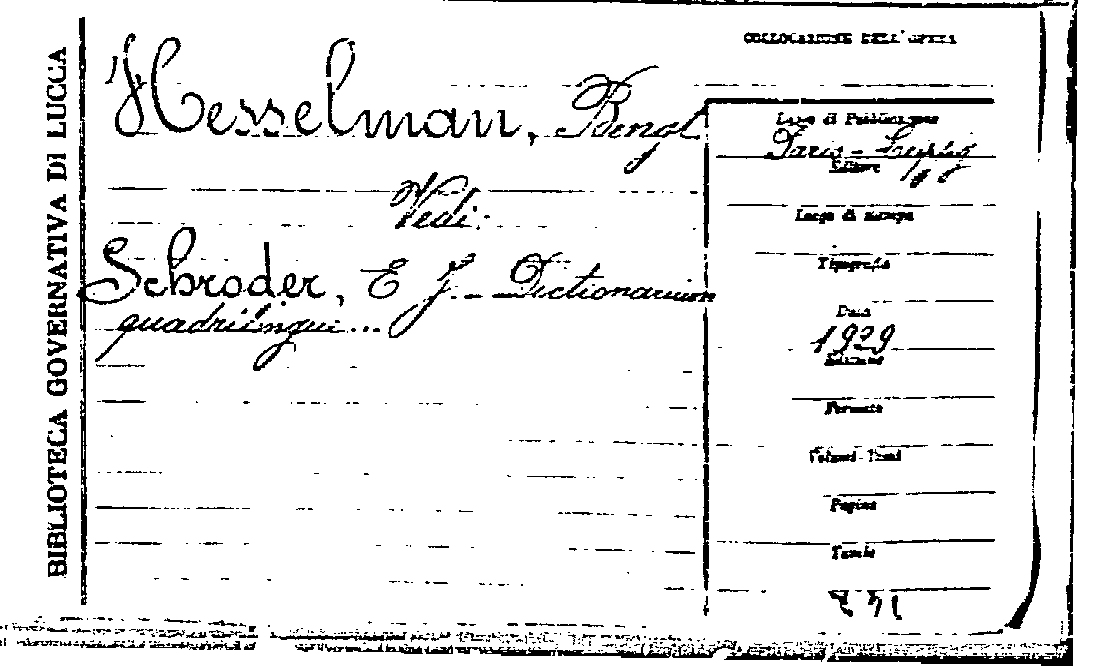 BIBLIOTECA GOVERNATIVA DI LUCCA
COLLOCAZIONE DELL'OPERA
Hesselman, Bengt
Vedi:
Schroder, E J. - Dictionarium
quadrilingui...
Luogo di Pubblicazione
Paris - Leipzig
Editore
Luogo di stampa
Tipografia
Data
1929
Edizione
Formato
Volumi - Tomi
Pagine
Tavole